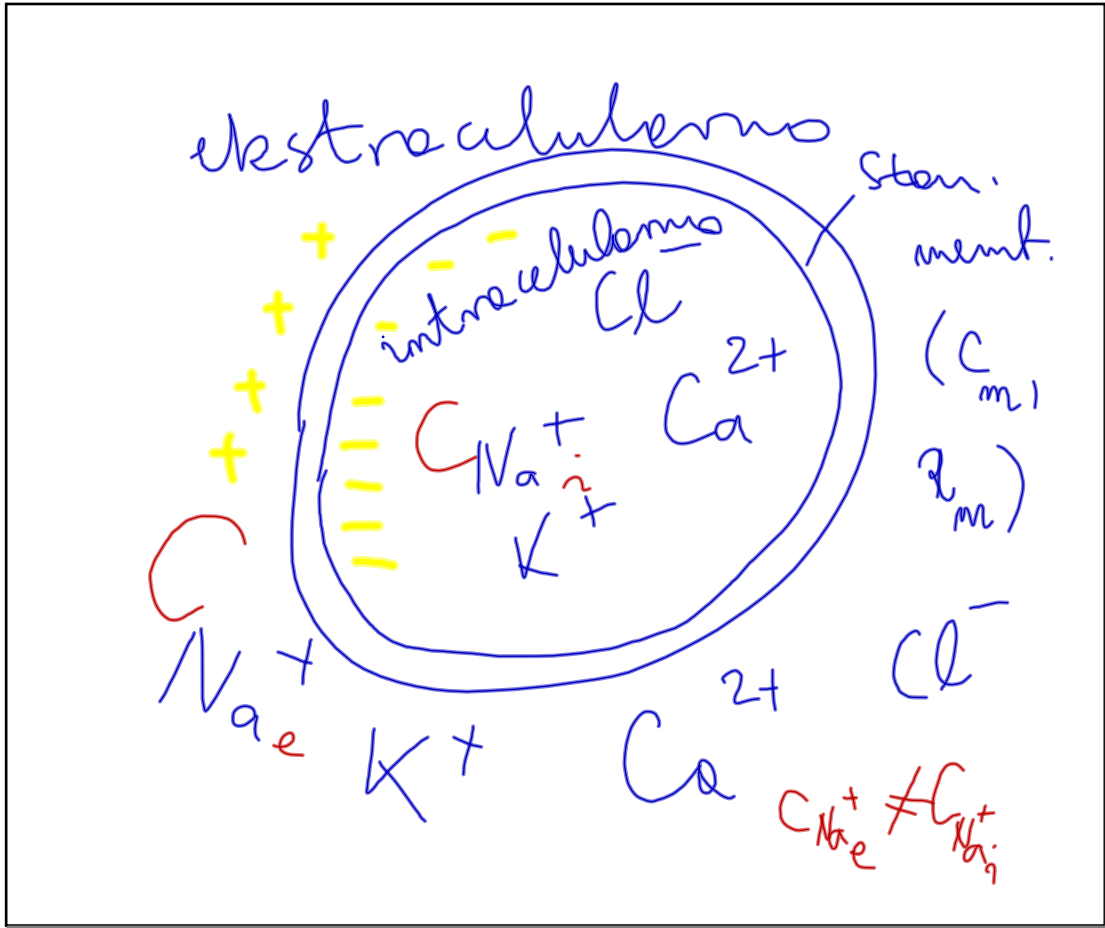 ekstracelularno
stan.
memb.
(Cm,
Rm)
intracelularno
Cl⁻
Ca²⁺
C Na⁺i
K⁺
C Na⁺e
K⁺
Ca²⁺
Cl⁻
C Na⁺e ≠ C Na⁺i
+ + + +
- - - - - - - -